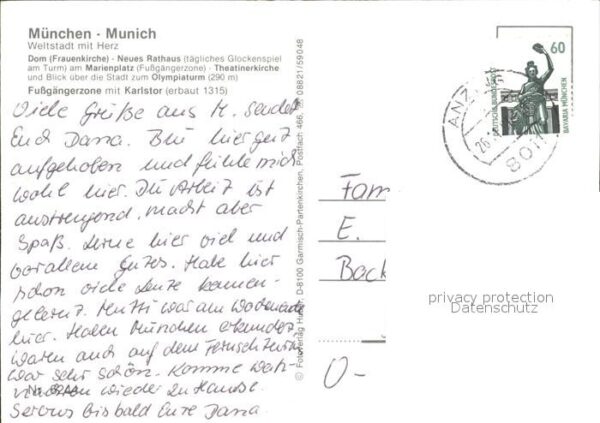 München · Munich
Weltstadt mit Herz
Dom (Frauenkirche) · Neues Rathaus (tägliches Glockenspiel
am Turm) am Marienplatz (Fußgängerzone) · Theatinerkirche
und Blick über die Stadt zum Olympiaturm (290 m)
Fußgängerzone mit Karlstor (erbaut 1315)
Viele Grüße aus M. sendet
Euch Dana. Bin hier gut
aufgehoben und fühle mich
wohl hier. Die Arbeit ist
anstrengend, macht aber
Spaß. Lerne hier viel und
vor allem Gutes. Habe hier
schon viele Leute kennen-
gelernt. Mutti war am Wochenende
hier. Haben München erkundet,
waren auch auf dem Fernsehturm
War sehr schön. Komme Weih-
nachten wieder zu Hause.
Servus bis bald Eure Dana.
© Fotoverlag Huber, D-8100 Garmisch-Partenkirchen, Postfach 466, ☏ 08821/59048
60
DEUTSCHE BUNDESPOST
BAVARIA MÜNCHEN
ANZ
26.
8011
Fam
E.
Bock
O-
privacy protection
Datenschutz